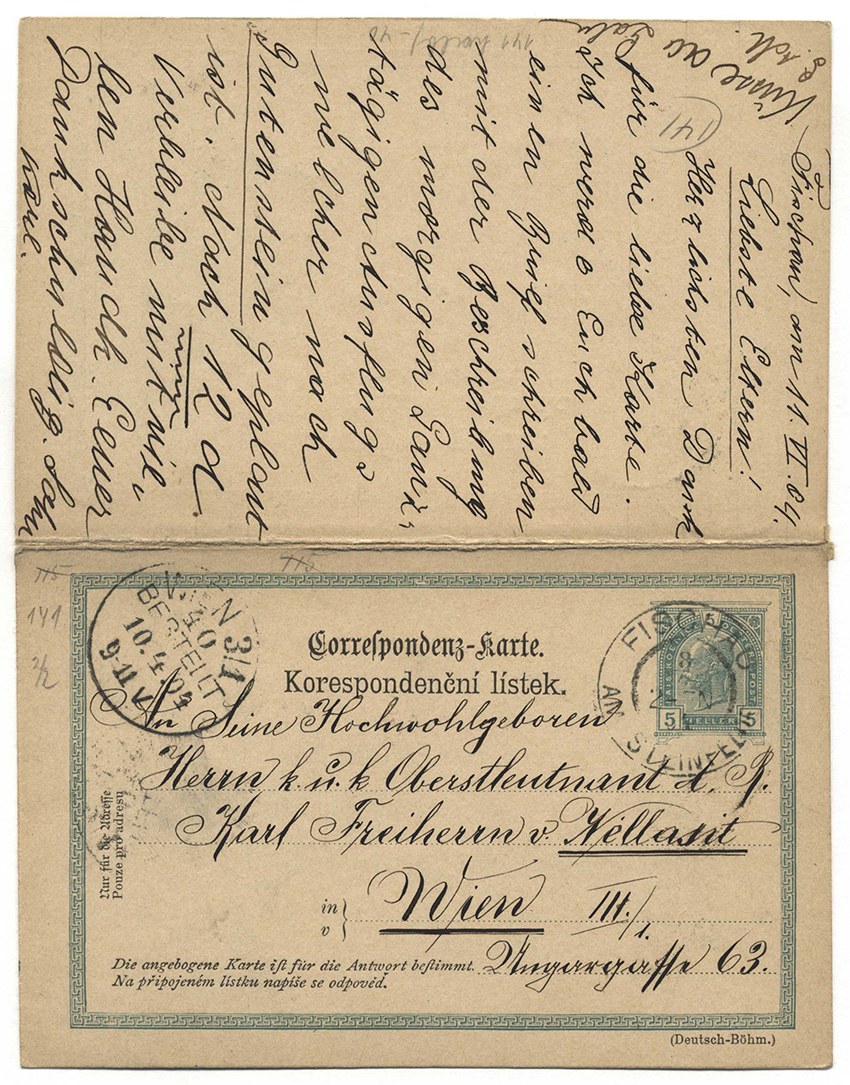 Fischau, am 11. VI. 04.
Liebste Eltern!
Herzlichsten Dank
für die liebe Karte.
Ich werde Euch bald
einen Brief schreiben
mit der Beschreibung
des morgigen Ganz-
tägigen Ausflugs
welcher nach
Gutenstein geplant
ist. Nach 12 d.
verbleibe mit vie-
len Handk. Euer
Dankschuldig. Sohn
Küsse an
141
115
115
141
2/2
WIEN 3/1
40
BESTELLT
10.4.04
9-11 V
FISCHAU
AM STEINFELD
5
5
HELLER
Correspondenz-Karte.
Korespondenční lístek.
An Seine Hochwohlgeboren
Herrn k. u. k Oberstleutnant d. R.
Karl Freiherrn v. Nellasit
in
v
Wien III./1.
Ungargasse 63.
Nur für die Adresse
Pouze pro adresu
Die angebogene Karte ist für die Antwort bestimmt.
Na připojeném lístku napíše se odpověd.
(Deutsch-Böhm.)